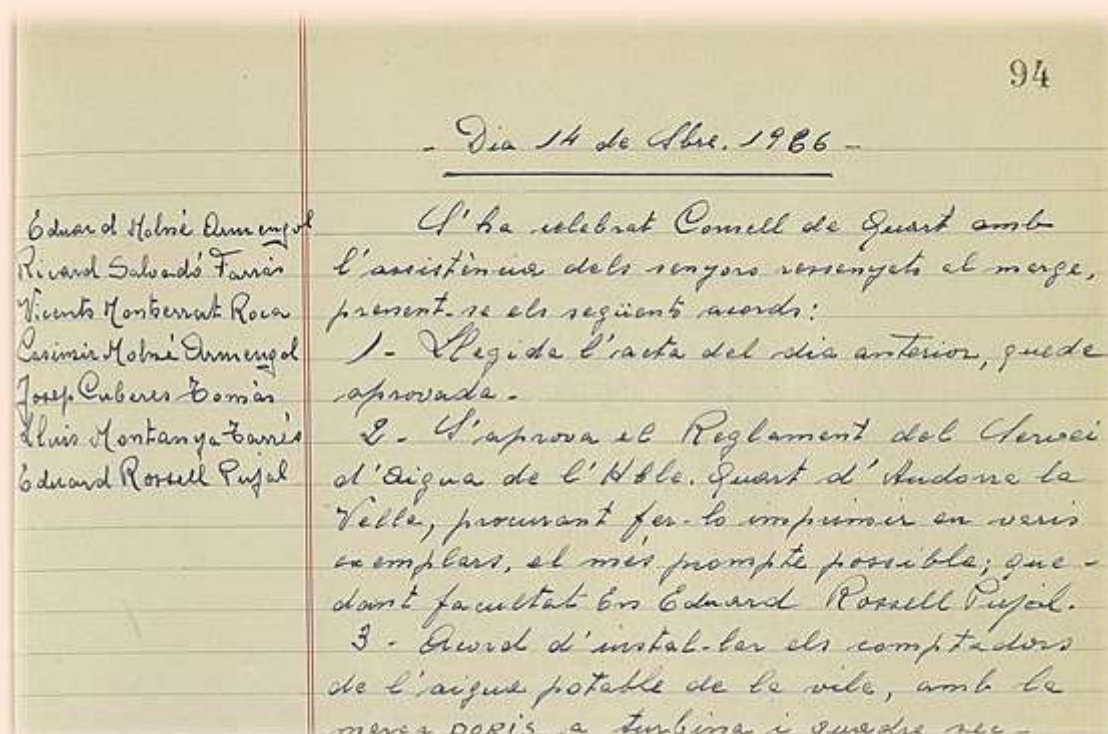 94
- Dia 14 de Sbre. 1966 -
Eduard Molné Armengol
Ricard Salvadó Farràs
Vicents Montserrat Roca
Casimir Molné Armengol
Josep Cuberes Tomàs
Lluis Montanya Tarrés
Eduard Rossell Pujal
S'ha celebrat Consell de Quart amb
l'assistència dels senyors ressenyats al marge,
prenent-se els següents acords:
1- Llegida l'acta del dia anterior, queda
aprovada.
2- S'aprova el Reglament del Servei
d'aigua de l'Hble. Quart d'Andorra la
Vella, procurant fer-lo imprimir en varis
exemplars, el més prompte possible; que-
dant facultat En Eduard Rossell Pujal.
3- Acord d'instal-lar els comptadors
de l'aigua potable de la vila, amb la
marca DORIS a turbina i quadre sec-